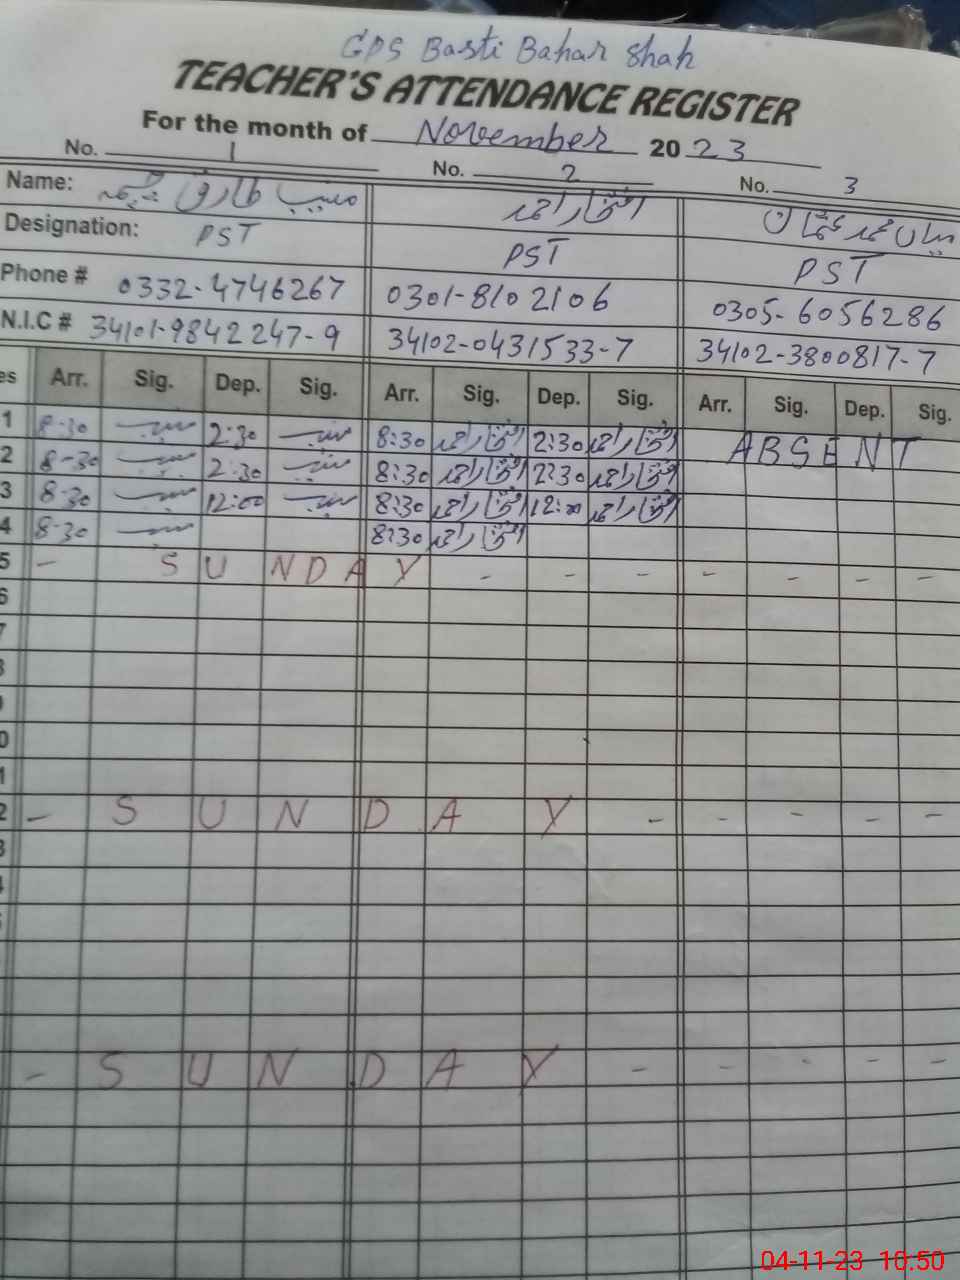 GPS Basti Bahar Shah
TEACHER'S ATTENDANCE REGISTER
For the month of November 2023
No. 1 No. 2 No. 3
Name: منیب طارق افتخار احمد میاں محمد عثمان
Designation: PST PST PST
Phone # 0332-4746267 0301-8102106 0305-6056286
N.I.C # 34101-9842247-9 34102-0431533-7 34102-3800817-7
es Arr. Sig. Dep. Sig. Arr. Sig. Dep. Sig. Arr. Sig. Dep. Sig.
1 8-30 منیب 2:30 منیب 8:30 افتخار احمد 2:30 افتخار احمد ABSENT
2 8-30 منیب 2:30 منیب 8:30 افتخار احمد 2:30 افتخار احمد
3 8-30 منیب 12:00 منیب 8:30 افتخار احمد 12:00 افتخار احمد
4 8-30 منیب 8:30 افتخار احمد
5 - SUNDAY - - - - - - -
6
7
8
0
1
2 - SUNDAY - - - - -
3
4
- SUNDAY - - - - -
04-11-23 10:50